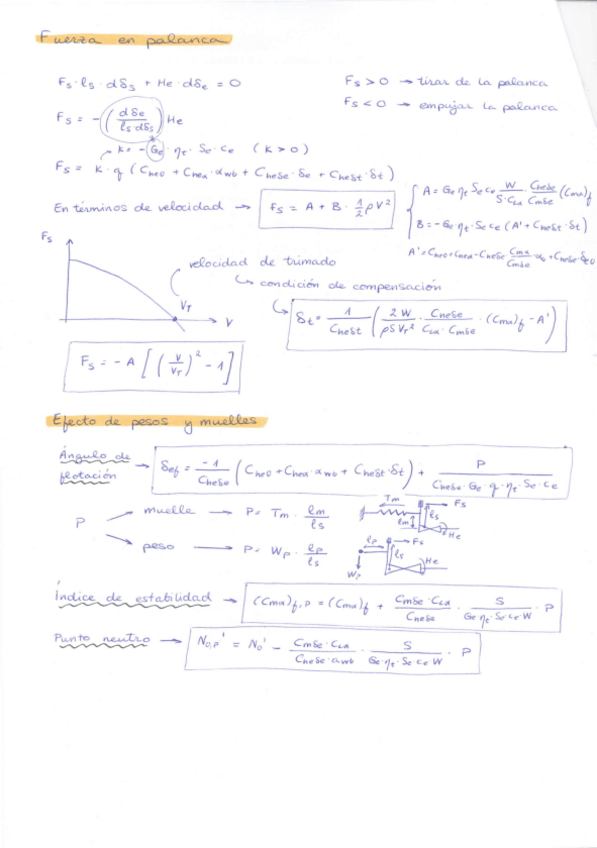 Fuerza en palanca
Fs · ls · dδs + He · dδe = 0
Fs > 0 → tirar de la palanca
Fs = - (dδe / ls·dδs) He
Fs < 0 → empujar la palanca
K = - Ge · ηt · Se · ce (K > 0)
Fs = K · q (Cheo + Cheα · αwb + Cheδe · δe + Cheδt · δt)
En términos de velocidad → Fs = A + B · 1/2 ρV²
A = Ge ηt Se ce W/(S·CLα) · Cheδe/Cmδe (Cmα)f
B = - Ge ηt · Se ce (A' + Cheδt · δt)
Fs
velocidad de trimado
↳ condición de compensación
VT
V
δt = 1/Cheδt (2W/(ρSVT²) · Cheδe/(CLα · Cmδe) · (Cmα)f - A')
Fs = - A [(V/VT)² - 1]
Efecto de pesos y muelles
Ángulo de flotación → δef = -1/Cheδe (Cheo + Cheα · αwb + Cheδt · δt) + P/(Cheδe · Ge · q · ηt · Se · ce)
P
muelle → P = Tm · lm/ls
Tm
Fs
lm
ls
He
peso → P = Wp · lp/ls
lp
Fs
ls
He
Wp
Índice de estabilidad → (Cmα)f,P = (Cmα)f + Cmδe · CLα/Cheδe · S/(Ge ηt · Se · ce W) · P
Punto neutro → No,P' = No' - Cmδe · CLα/(Cheδe · αwb) · S/(Ge · ηt · Se ce W) · P